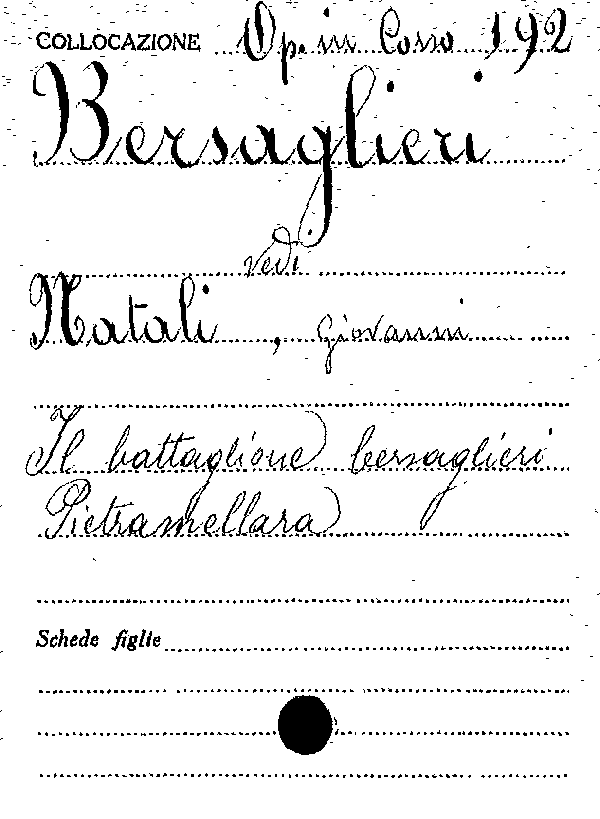 COLLOCAZIONE Op. in Corso 192
Bersaglieri
vedi
Natali, Giovanni
Il battaglione bersaglieri
Pietramellara
Schede figlie